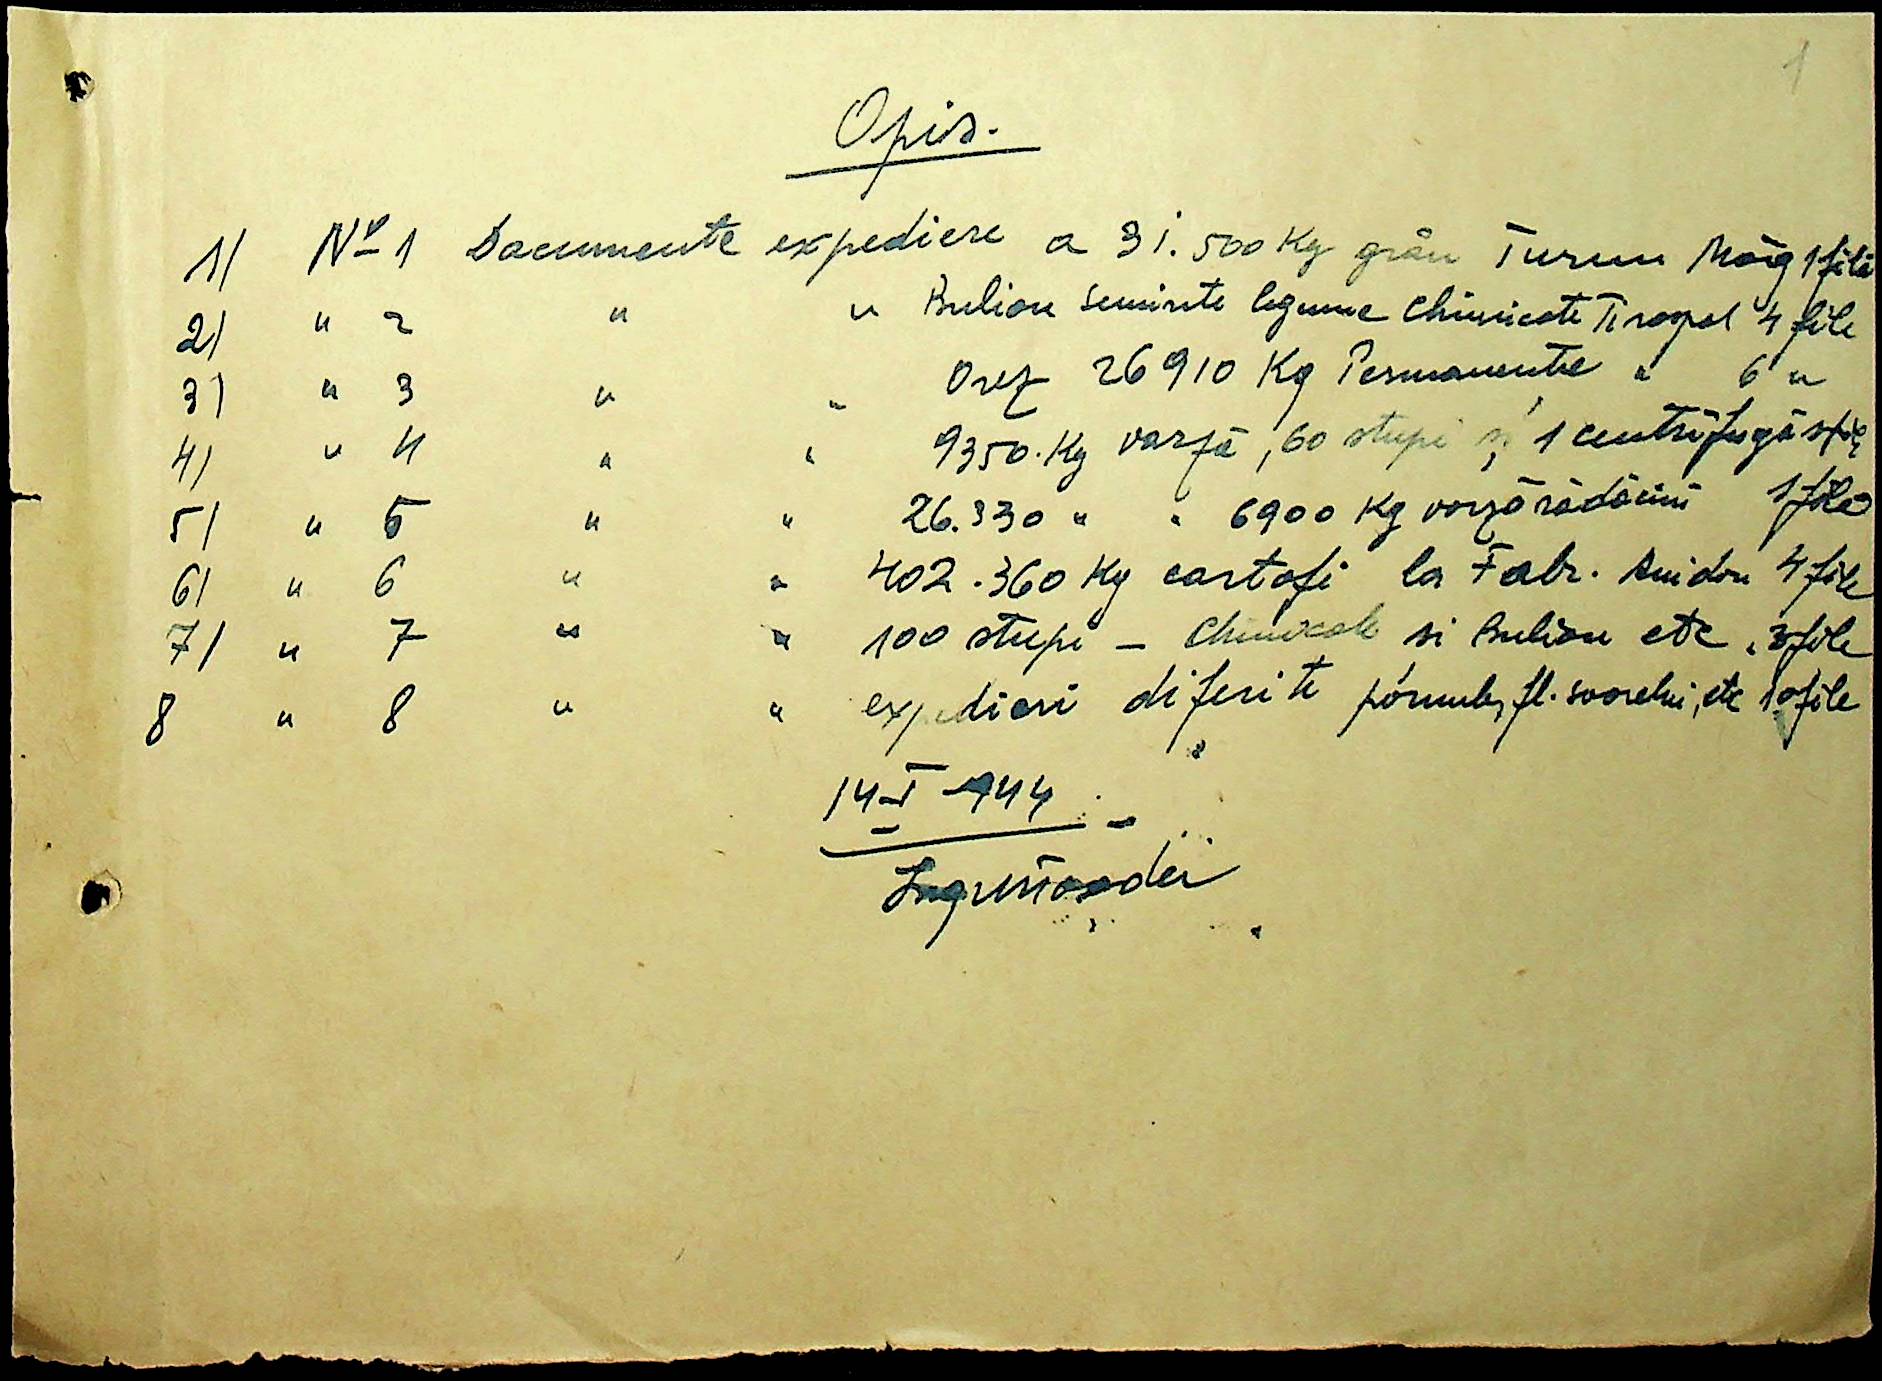 1
Opis.
1/ Nº 1 Documente expediere a 31.500 Kg grâu Turnu Măg 1 filă
2/ " 2 " " Bulion seminte legume Chimicate Tiraspol 4 file
3/ " 3 " " Orez 26910 Kg Permanente " 6 "
4/ " 4 " " 9350. Kg varză, 60 stupi și 1 centrifugă
5/ " 5 " " 26.330 " " 6900 Kg varză rădăcini 1 filă
6/ " 6 " " 402.360 Kg cartofi la Fabr. Amidon 4 file
7/ " 7 " " 100 stupi - Chimicale si Bulion etc. 3 file
8 " 8 " " expedieri diferite porumb, fl. soarelui, etc 10 file
14 I 944